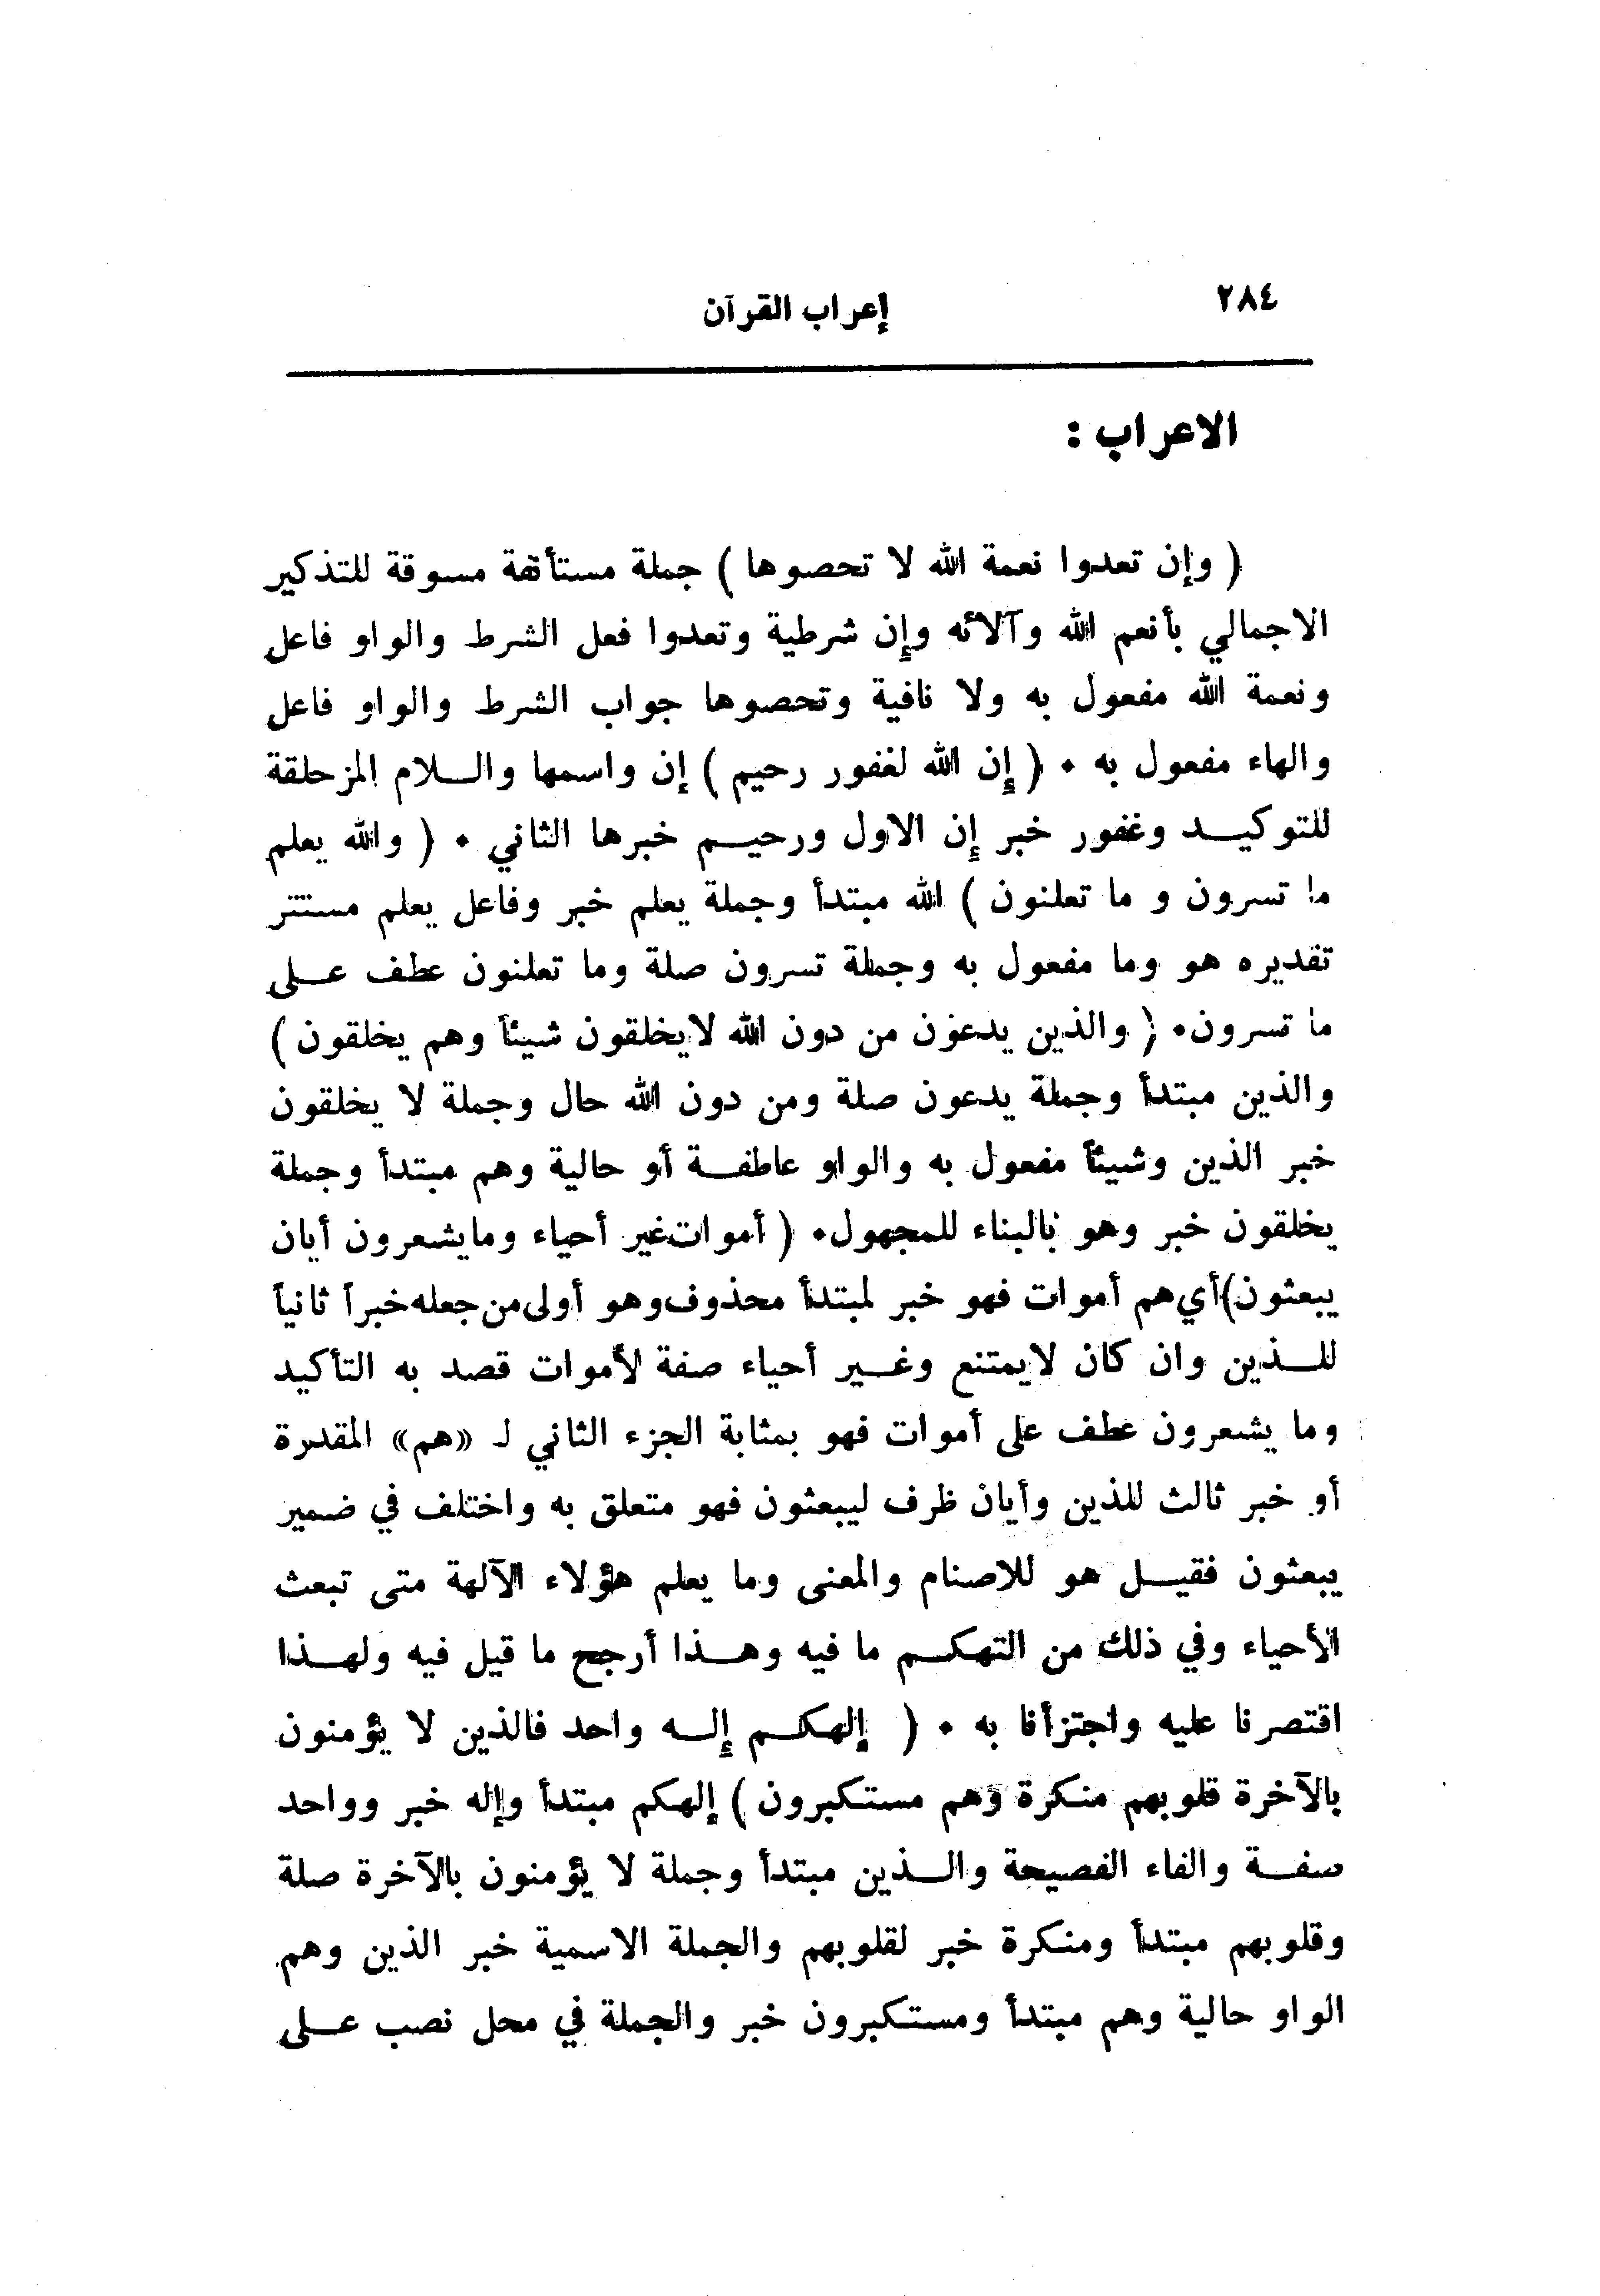 ٢٨٤
إعراب القرآن
الاعراب :
( وإن تعدوا نعمة الله لا تحصوها ) جملة مستأنفة مسوقة للتذكير
الاجمالي بأنعم الله وآلائه وإن شرطية وتعدوا فعل الشرط والواو فاعل
ونعمة الله مفعول به ولا نافية وتحصوها جواب الشرط والواو فاعل
والهاء مفعول به ٠ ( إن الله لغفور رحيم ) إن واسمها والـلام المزحلقة
للتوكيـد وغفور خبر إن الاول ورحيـم خبرها الثاني ٠ ( والله يعلم
ما تسرون و ما تعلنون ) الله مبتدأ وجملة يعلم خبر وفاعل يعلم مستتر
تقديره هو وما مفعول به وجملة تسرون صلة وما تعلنون عطف عـلى
ما تسرون٠ ( والذين يدعون من دون الله لايخلقون شيئاً وهم يخلقون )
والذين مبتدأ وجملة يدعون صلة ومن دون الله حال وجملة لا يخلقون
خبر الذين وشيئاً مفعول به والواو عاطفـة أو حالية وهم مبتدأ وجملة
يخلقون خبر وهو بالبناء للمجهول٠ ( أموات غير أحياء ومايشعرون أيان
يبعثون)أي هم أموات فهو خبر لمبتدأ محذوف وهو أولى من جعله خبراً ثانياً
للـذين وان كان لايمتنع وغـير أحياء صفة لأموات قصد به التأكيد
وما يشعرون عطف على أموات فهو بمثابة الجزء الثاني لـ «هم» المقدرة
أو خبر ثالث للذين وأيان ظرف ليبعثون فهو متعلق به واختلف في ضمير
يبعثون فقيـل هو للاصنام والمعنى وما يعلم هؤلاء الآلهة متى تبعث
الأحياء وفي ذلك من التهكـم ما فيه وهـذا أرجح ما قيل فيه ولهـذا
اقتصرنا عليه واجتزأنا به ٠ ( إلهكـم إلـه واحد فالذين لا يؤمنون
بالآخرة قلوبهم منكرة وهم مستكبرون ) إلهكم مبتدأ وإله خبر وواحد
صفـة والفاء الفصيحة والـذين مبتدأ وجملة لا يؤمنون بالآخرة صلة
وقلوبهم مبتدأ ومنكرة خبر لقلوبهم والجملة الاسمية خبر الذين وهم
الواو حالية وهم مبتدأ ومستكبرون خبر والجملة في محل نصب عـلى